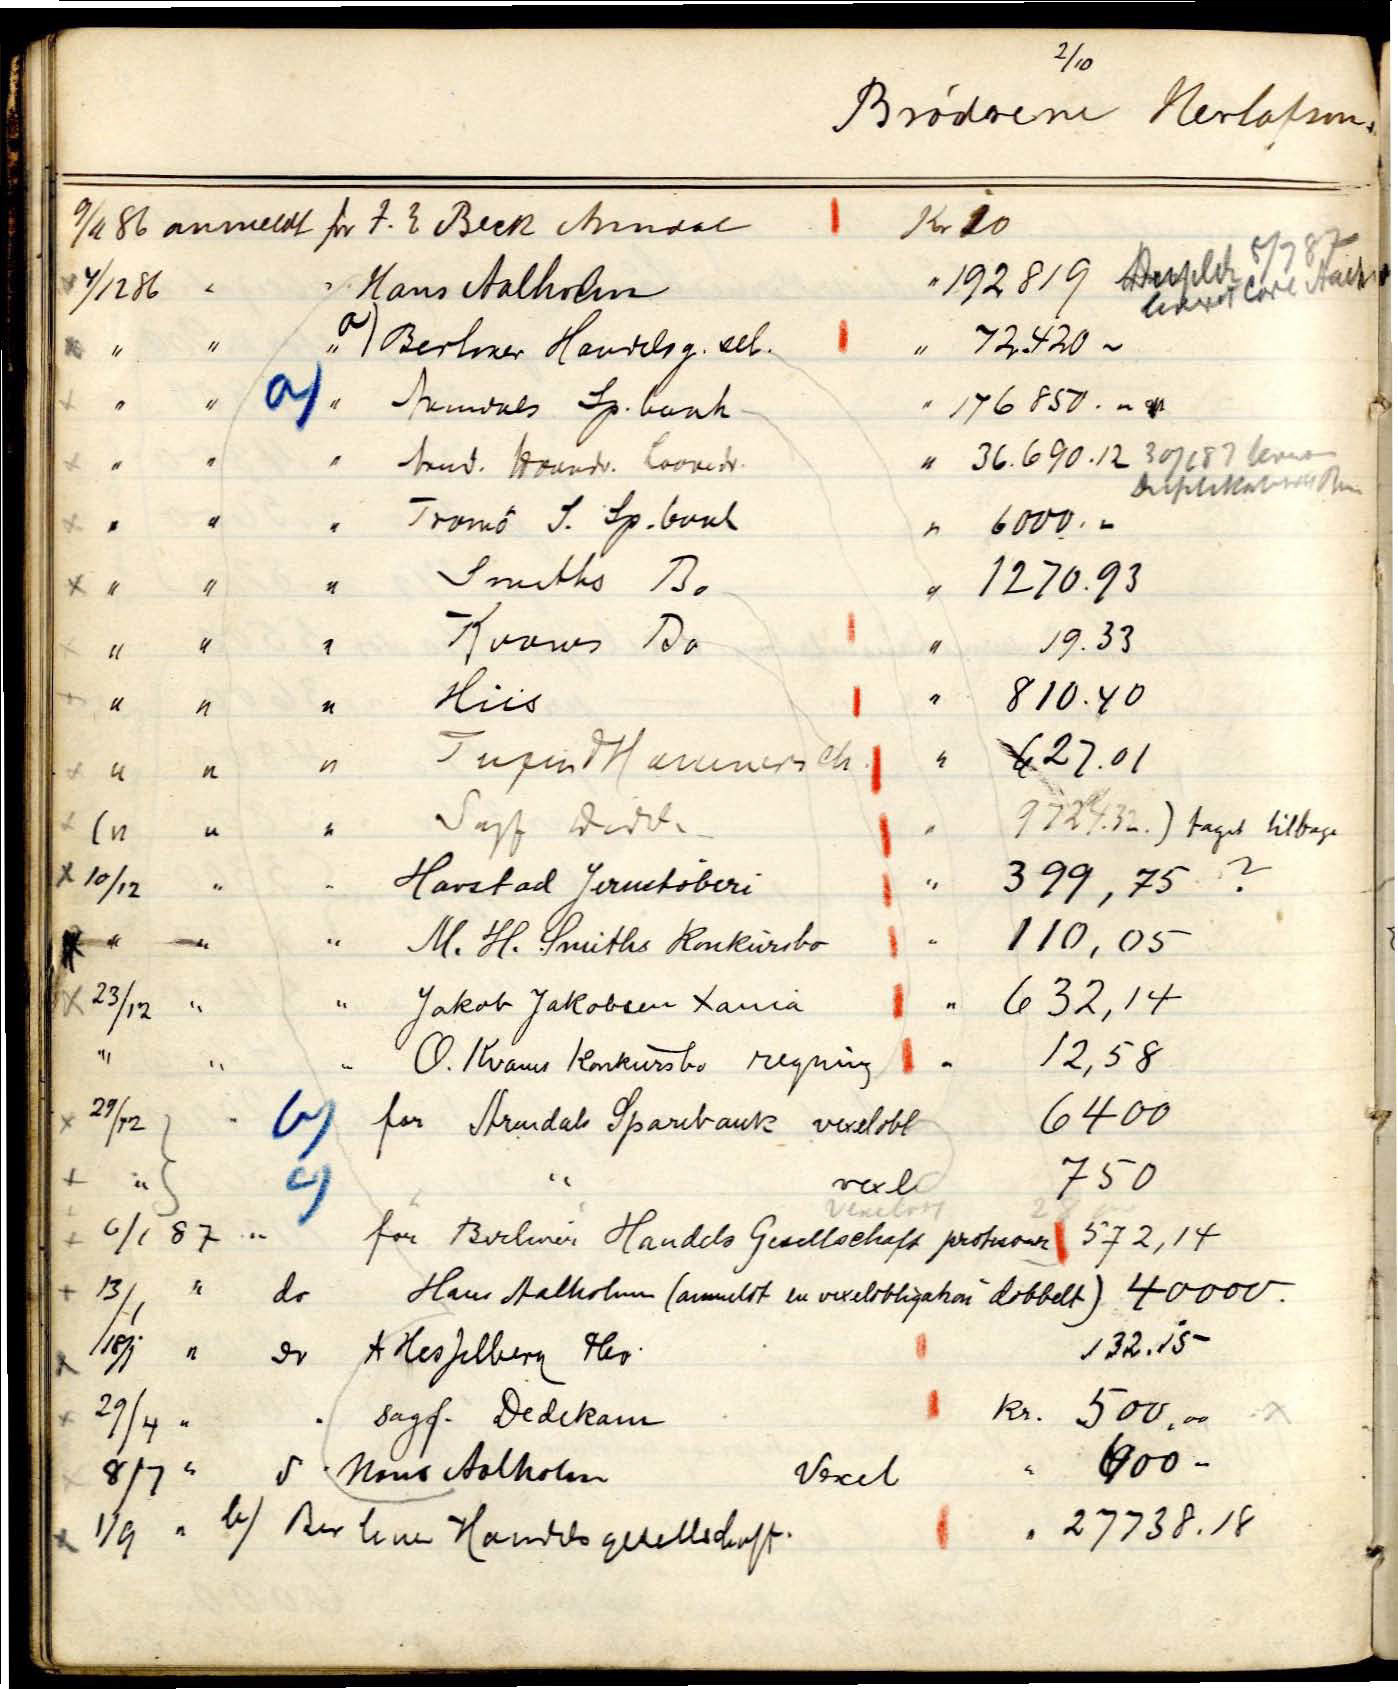 2/10
Brödrene Herlofson.
9/11 86 anmeldt for F. E Beck Arendal Kr 10
4/12 86 " " Hans Aalholm " 192819 5/7 87
" " " a) Berliner Handelsg. sel. " 72.420 "
" " a) " Arendals Sp.bank " 176850. "
" " " Arend. " 36.690.12 30/6 87
" " " Tromö S. Sp.bank " 6000. "
" " " Smiths Bo " 1270.93
" " " Kvams Bo " 19.33
" " " Hiis " 810.40
" " " " 627.01
(" " " Sagf " 9724.32.) taget tilbage
x 10/12 " " Havstad Jernstöberi " 399,75 ?
" " " M. H. Smiths Konkursbo " 110,05
x 23/12 " " Jakob Jakobsen Xania " 632,14
" " " O. Kvams Konkursbo regning " 12,58
x 29/12 " b) for Arendals Sparebank vexelobl 6400
+ " c) " vexel 750
+ 6/1 87 " for Berliner Handels Gesellschaft 572,14
+ 13/1 " do Hans Aalholm (anmeldt en vexelobligation dobbelt) 40000.
x 18/1 " do A Hesselberg 132.15
x 29/4 " " sagf. Dedekam Kr. 500,00 x
x 8/7 " d Hans Aalholm Vexel " 600 -
x 1/9 " b) Berliner Handelsgesellschaft. " 27738.18